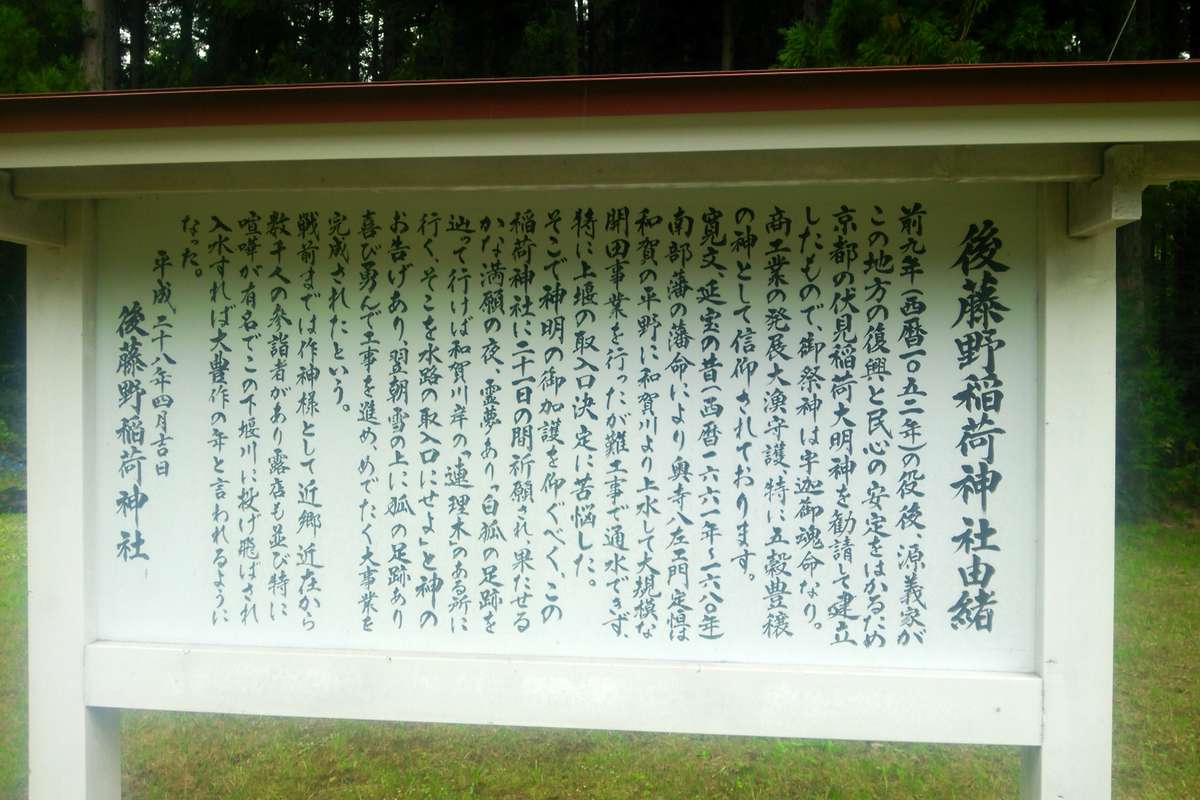 後藤野稲荷神社由緒
前九年(西暦一〇五二年)の役後、源義家が
この地方の復興と民心の安定をはかるため
京都の伏見稲荷大明神を勧請して建立
したもので、御祭神は宇迦御魂命なり。
商工業の発展大漁守護、特に五穀豊穣
の神として信仰されております。
寛文、延宝の昔(西暦一六六一年～一六八〇年)
南部藩の藩命により奥寺八左ェ門定恒は
和賀の平野に和賀川より上水して大規模な
開田事業を行ったが難工事で通水できず、
特に上堰の取入口決定に苦悩した。
そこで神明の御加護を仰ぐべく、この
稲荷神社に二十一日の間祈願され、果たせる
かな満願の夜、霊夢あり「白狐の足跡を
辿って行けば和賀川岸の「連理木」のある所に
行く、そこを水路の取入口にせよ」と神の
お告げあり、翌朝雪の上に狐の足跡あり
喜び勇んで工事を進め、めでたく大事業を
完成されたという。
戦前までは作神様として近郷近在から
数千人の参詣者があり露店も並び特に
喧嘩が有名でこの下堰川に投げ飛ばされ
入水すれば大豊作の年と言われるように
なった。
平成二十八年四月吉日
後藤野稲荷神社